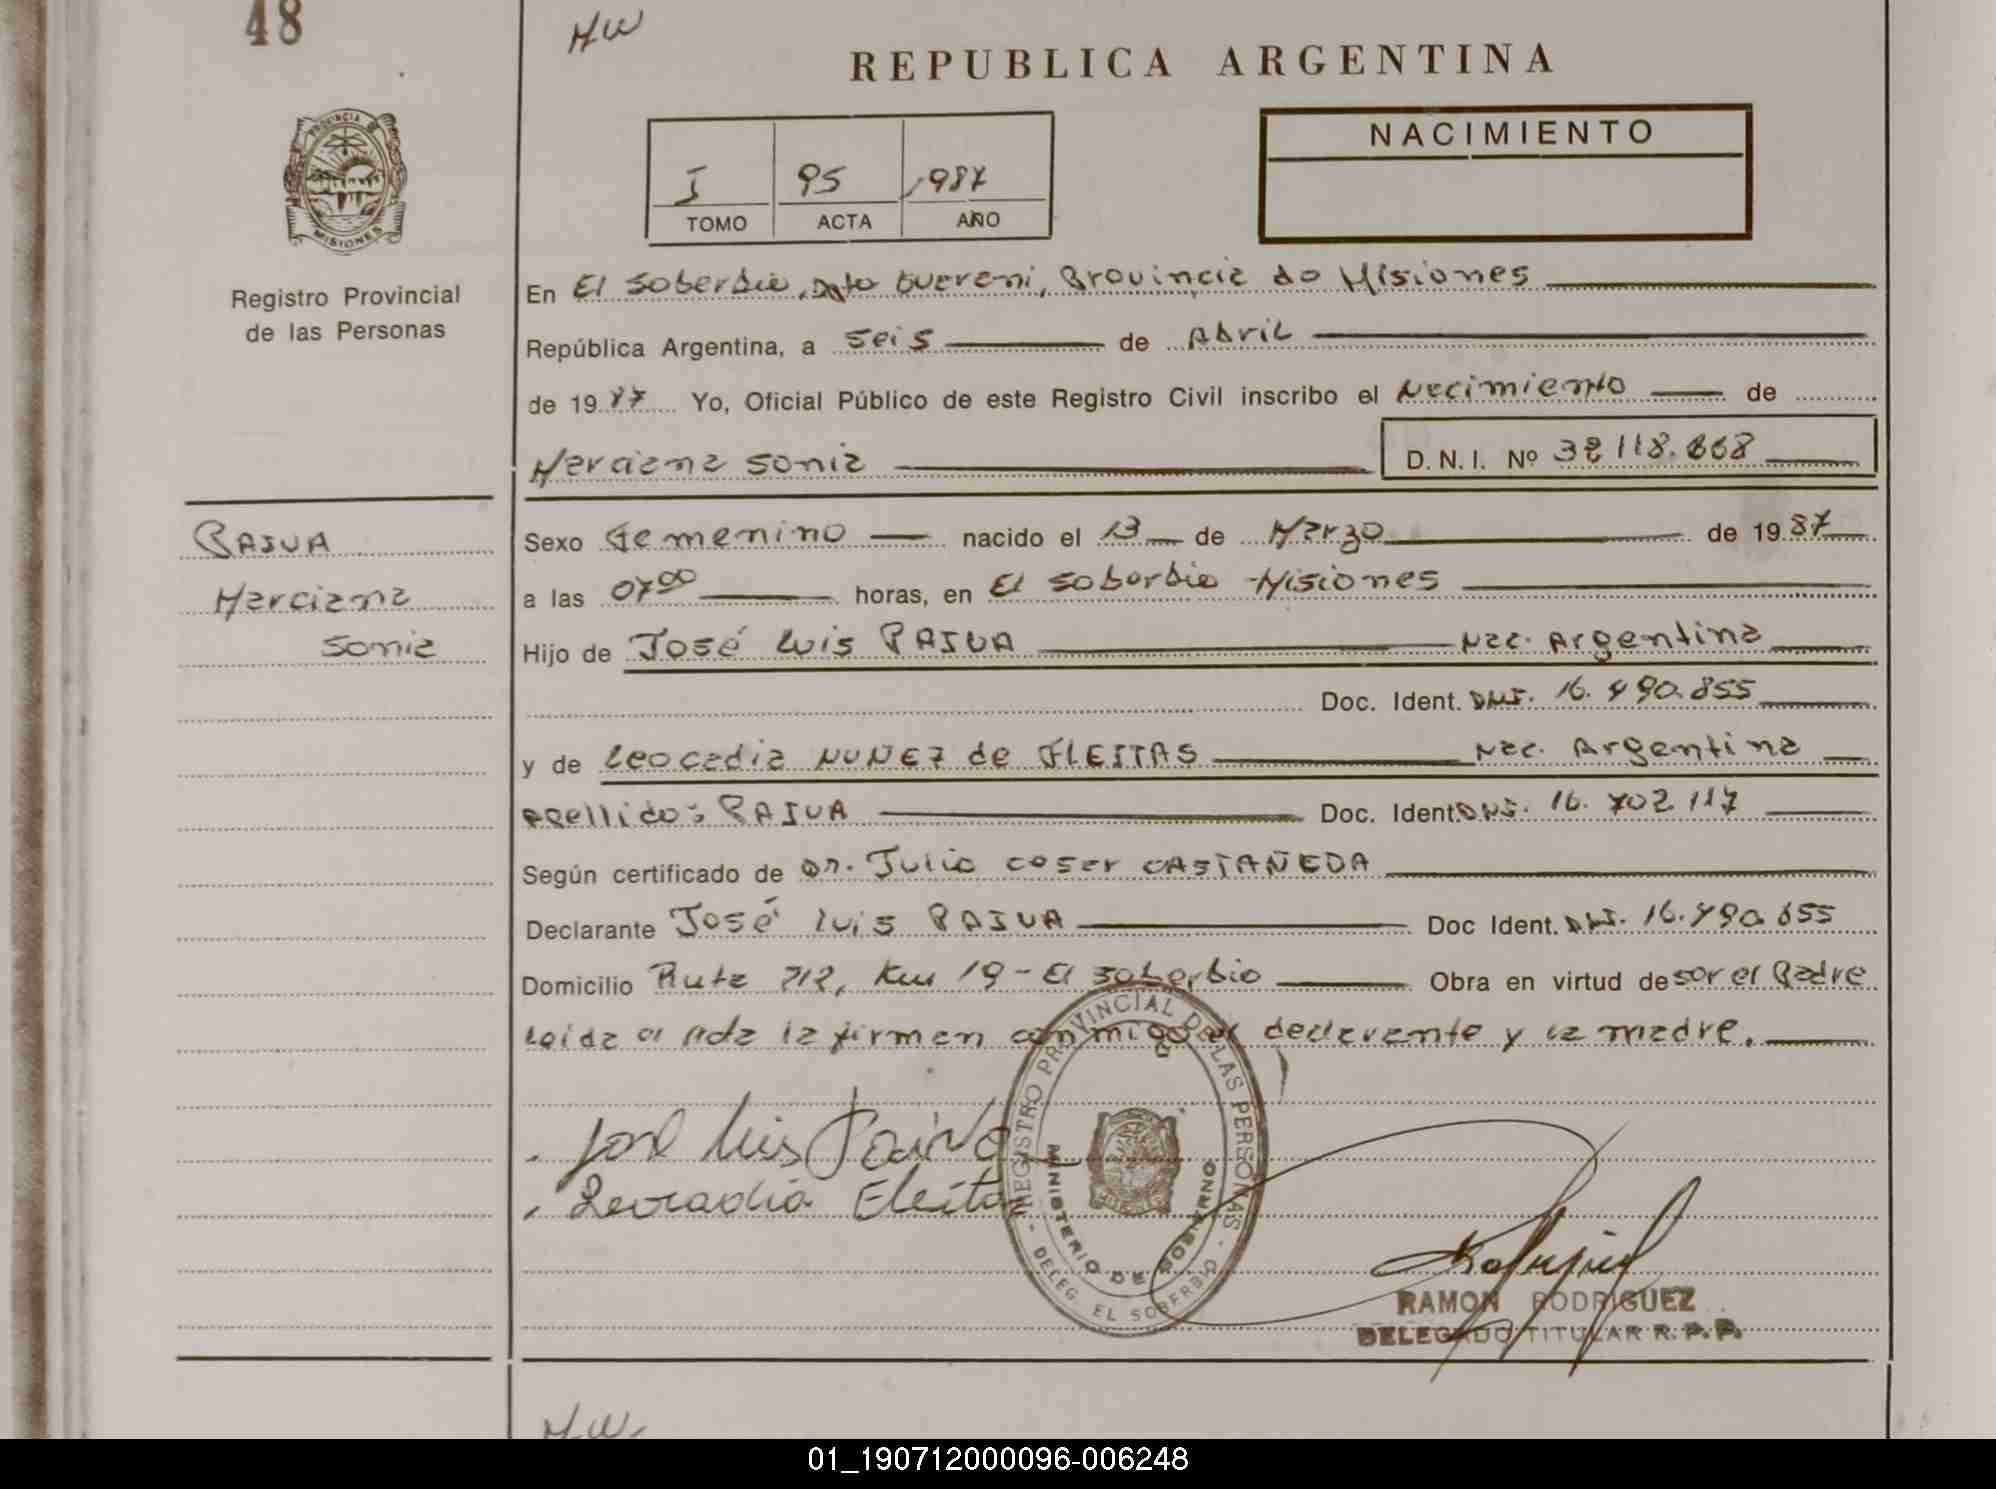 48
HW
REPUBLICA ARGENTINA
PROVINCIA DE
MISIONES
Registro Provincial
de las Personas
I 95 1987
TOMO ACTA AÑO
NACIMIENTO
En El Soberbio, Dpto Guarani, Provincia de Misiones
República Argentina, a seis de Abril
de 1987 Yo, Oficial Público de este Registro Civil inscribo el Nacimiento de
Marciana Sonia D.N.I. Nº 32118.668
PAIVA
Marciana
Sonia
Sexo Femenino nacido el 13 de Marzo de 1987
a las 07 00 horas, en El Soberbio - Misiones
Hijo de José Luis PAIVA Nac. Argentina
Doc. Ident. DNI. 16.490.855
y de Leocadia NUNEZ de FLEITAS Nac. Argentina
apellido: PAIVA Doc. Ident DNI. 16.702.117
Según certificado de Dr. Julio Coser CASTAÑEDA
Declarante José Luis PAIVA Doc Ident. DNI. 16.490.855
Domicilio Ruta 212, Km 19 - El Soberbio Obra en virtud de ser el Padre
Leida el Acta la firman conmigo el declarante y la madre.
José Luis Paiva
Leocadia Fleita
REGISTRO PROVINCIAL DE LAS PERSONAS - DELEG. EL SOBERBIO -
MINISTERIO DE GOBIERNO
RAMON RODRIGUEZ
DELEGADO TITULAR R.P.P.
H.W.
01_190712000096-006248